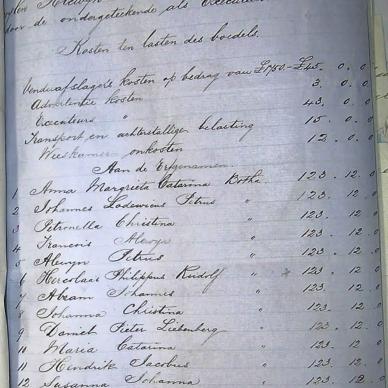 door de ondergeteekende als
Kosten ten lasten des boedels.
Venduafslagers kosten op bedrag van £1750.- £45. 0. 0.
Advertentie kosten 3. 0. 0
Executeurs " 43. 0. 0
Transport en achterstallige belasting 15. 0. 0
Weeskamer onkosten 12. 0. 0
Aan de Erfgenamen
1 Anna Margrieta Catarina Botha 123. 12. 0
2 Johannes Lodewicus Petrus " 123. 12. 0
3 Petronella Christina " 123. 12. 0
4 Francois Alewyn " 123. 12. 0
5 Alewyn Petrus " 123. 12. 0
6 Hercolaas Philippus Rudolf " 123. 12. 0
7 Abram Johannes " 123. 12. 0
8 Johanna Christina " 123. 12. 0
9 Daniel Pieter Liebenberg " 123. 12. 0
10 Maria Catarina " 123. 12. 0
11 Hendrik Jacobus " 123. 12. 0
12 Susanna Johanna " 123. 12. 0